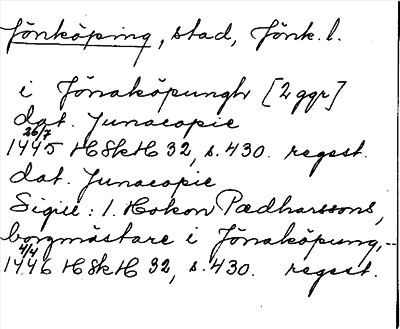 Jönköping, stad, Jönk. l.
i Jönaköpungh [2 ggr]
dat. Junacopie
26/7
1445 HSkH 32, s. 430. regest.
dat. Junacopie
Sigill: 1. Hokon Pædharssons,
borgmästare i Jönaköpung,-
4/4
1446 HSkH 32, s. 430. regest.